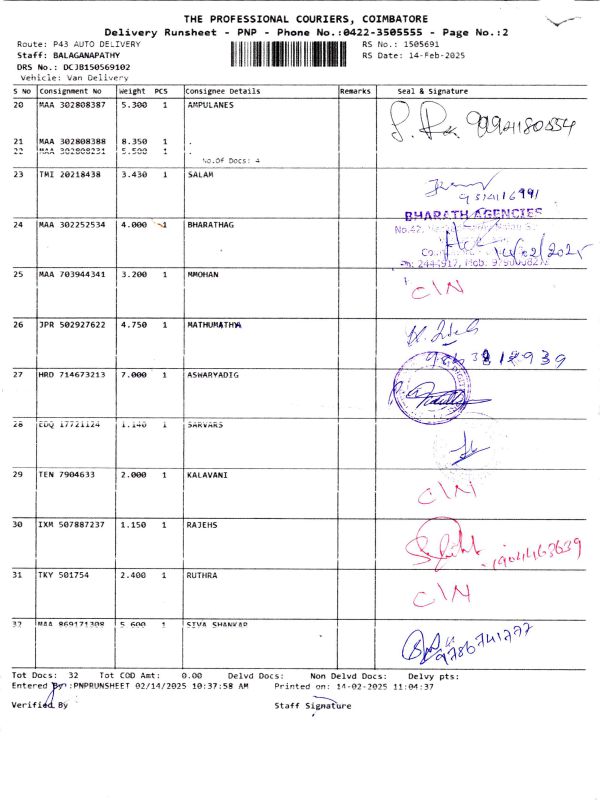 THE PROFESSIONAL COURIERS, COIMBATORE
Delivery Runsheet - PNP - Phone No.:0422-3505555 - Page No.:2
Route: P43 AUTO DELIVERY RS No.: 1505691
Staff: BALAGANAPATHY RS Date: 14-Feb-2025
DRS No.: DCJB150569102
Vehicle: Van Delivery
S No Consignment No Weight PCS Consignee Details Remarks Seal & Signature
20 MAA 302808387 5.300 1 AMPULANES
21 MAA 302808388 8.350 1 .
22 MAA 302808231 5.500 1 .
No.Of Docs: 4
23 TMI 20218438 3.430 1 SALAM
BHARATH AGENCIES
24 MAA 302252534 4.000 1 BHARATHAG
No.42,
14/02/2025
25 MAA 703944341 3.200 1 MMOHAN
C\N
26 JPR 502927622 4.750 1 MATHUMATHYA
27 HRD 714673213 7.000 1 ASWARYADIG
28 EDQ 17721124 1.140 1 SARVARS
29 TEN 7904633 2.000 1 KALAVANI
C\N
30 IXM 507887237 1.150 1 RAJEHS
31 TKY 501754 2.400 1 RUTHRA
C\N
32 MAA 869171308 5.600 1 SIVA SHANKAR
9786741777
Tot Docs: 32 Tot COD Amt: 0.00 Delvd Docs: Non Delvd Docs: Delvy pts:
Entered By :PNPRUNSHEET 02/14/2025 10:37:58 AM Printed on: 14-02-2025 11:04:37
Verified By Staff Signature